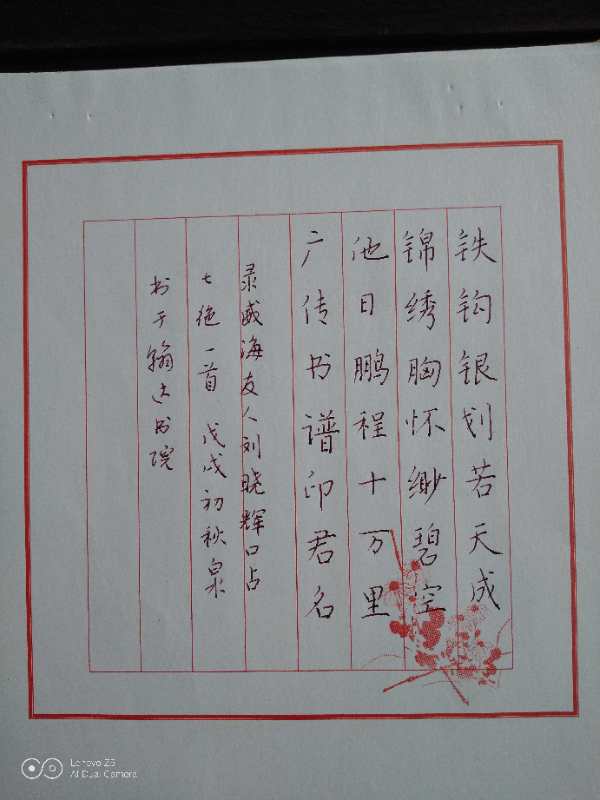 铁钩银划若天成
锦绣胸怀缈碧空
他日鹏程十万里
广传书谱印君名
录威海友人刘晓辉口占
七绝一首 戊戌初秋泉
书于翰达书院
Lenovo Z5
AI Dual Camera